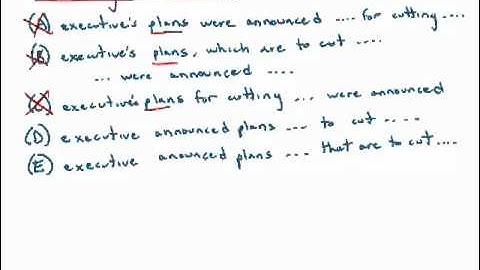 (A) executive's plans were announced .... for cutting ....
(B) executive's plans, which are to cut ....
... were announced ....
(C) executive's plans for cutting ... were announced
(D) executive announced plans ... to cut ....
(E) executive anounced plans ... that are to cut ....